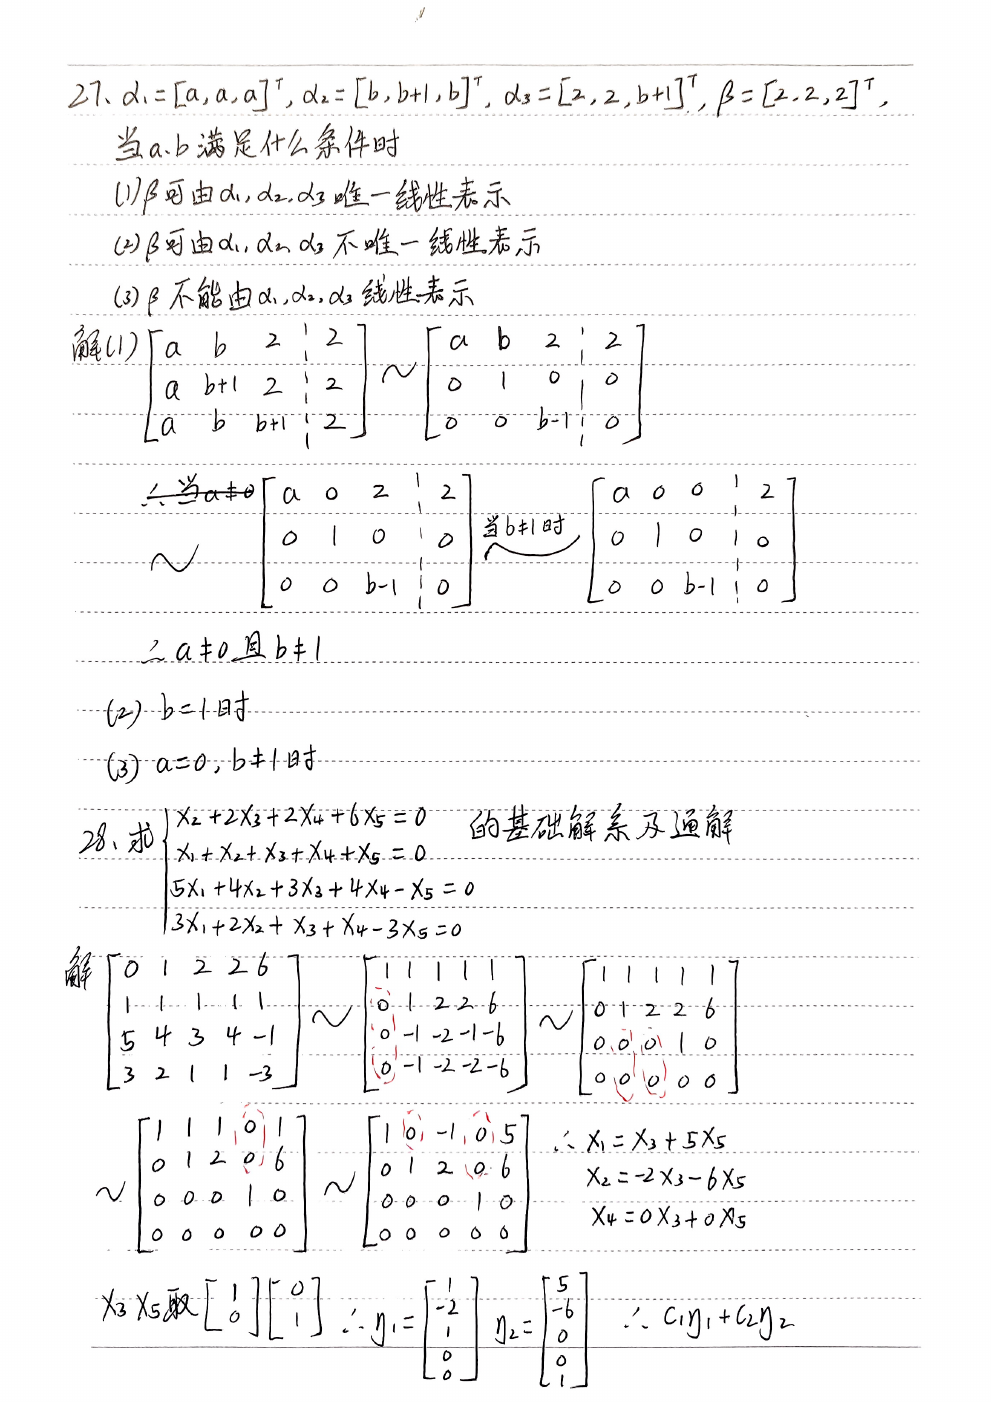 27、α₁=[a,a,a]ᵀ, α₂=[b,b+1,b]ᵀ, α₃=[2,2,b+1]ᵀ, β=[2,2,2]ᵀ,
当a、b满足什么条件时
(1)β可由α₁,α₂,α₃唯一线性表示
(2)β可由α₁,α₂,α₃不唯一线性表示
(3)β不能由α₁,α₂,α₃线性表示
解(1) [a b 2 ¦ 2; a b+1 2 ¦ 2; a b b+1 ¦ 2] ~ [a b 2 ¦ 2; 0 1 0 ¦ 0; 0 0 b-1 ¦ 0]
∴当a≠0
~ [a 0 2 ¦ 2; 0 1 0 ¦ 0; 0 0 b-1 ¦ 0] 当b≠1时 ~ [a 0 0 ¦ 2; 0 1 0 ¦ 0; 0 0 b-1 ¦ 0]
∴a≠0且b≠1
(2) b=1时
(3) a=0,b≠1时
28、求 { x₂+2x₃+2x₄+6x₅=0 的基础解系及通解
x₁+x₂+x₃+x₄+x₅=0
5x₁+4x₂+3x₃+4x₄-x₅=0
3x₁+2x₂+x₃+x₄-3x₅=0
解 [0 1 2 2 6; 1 1 1 1 1; 5 4 3 4 -1; 3 2 1 1 -3] ~ [1 1 1 1 1; 0 1 2 2 6; 0 -1 -2 -1 -6; 0 -1 -2 -2 -6] ~ [1 1 1 1 1; 0 1 2 2 6; 0 0 0 1 0; 0 0 0 0 0]
~ [1 1 1 0 1; 0 1 2 0 6; 0 0 0 1 0; 0 0 0 0 0] ~ [1 0 -1 0 5; 0 1 2 0 6; 0 0 0 1 0; 0 0 0 0 0] ∴x₁=x₃+5x₅
x₂=-2x₃-6x₅
x₄=0x₃+0x₅
x₃ x₅取 [1; 0] [0; 1] ∴η₁=[1; -2; 1; 0; 0] η₂=[5; -6; 0; 0; 1] ∴ c₁η₁+c₂η₂